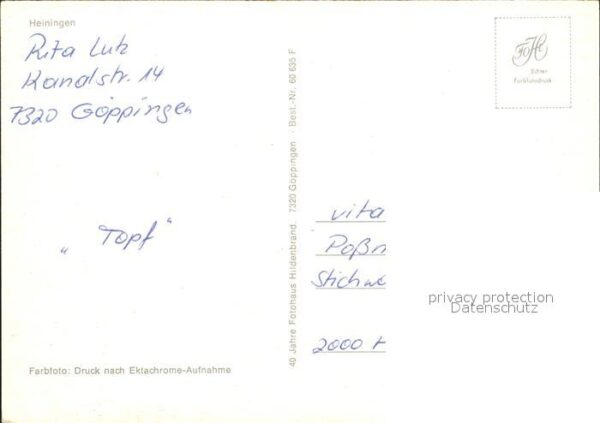 Heiningen
Rita Lutz
Kandlstr. 14
7320 Göppingen
"Topf"
Farbfoto: Druck nach Ektachrome-Aufnahme
40 Jahre Fotohaus Hildenbrand. 7320 Göppingen · Best.-Nr. 60 635 F
Echter
Farbfotodruck
vita
Poßn
Stichw
2000 H
privacy protection
Datenschutz